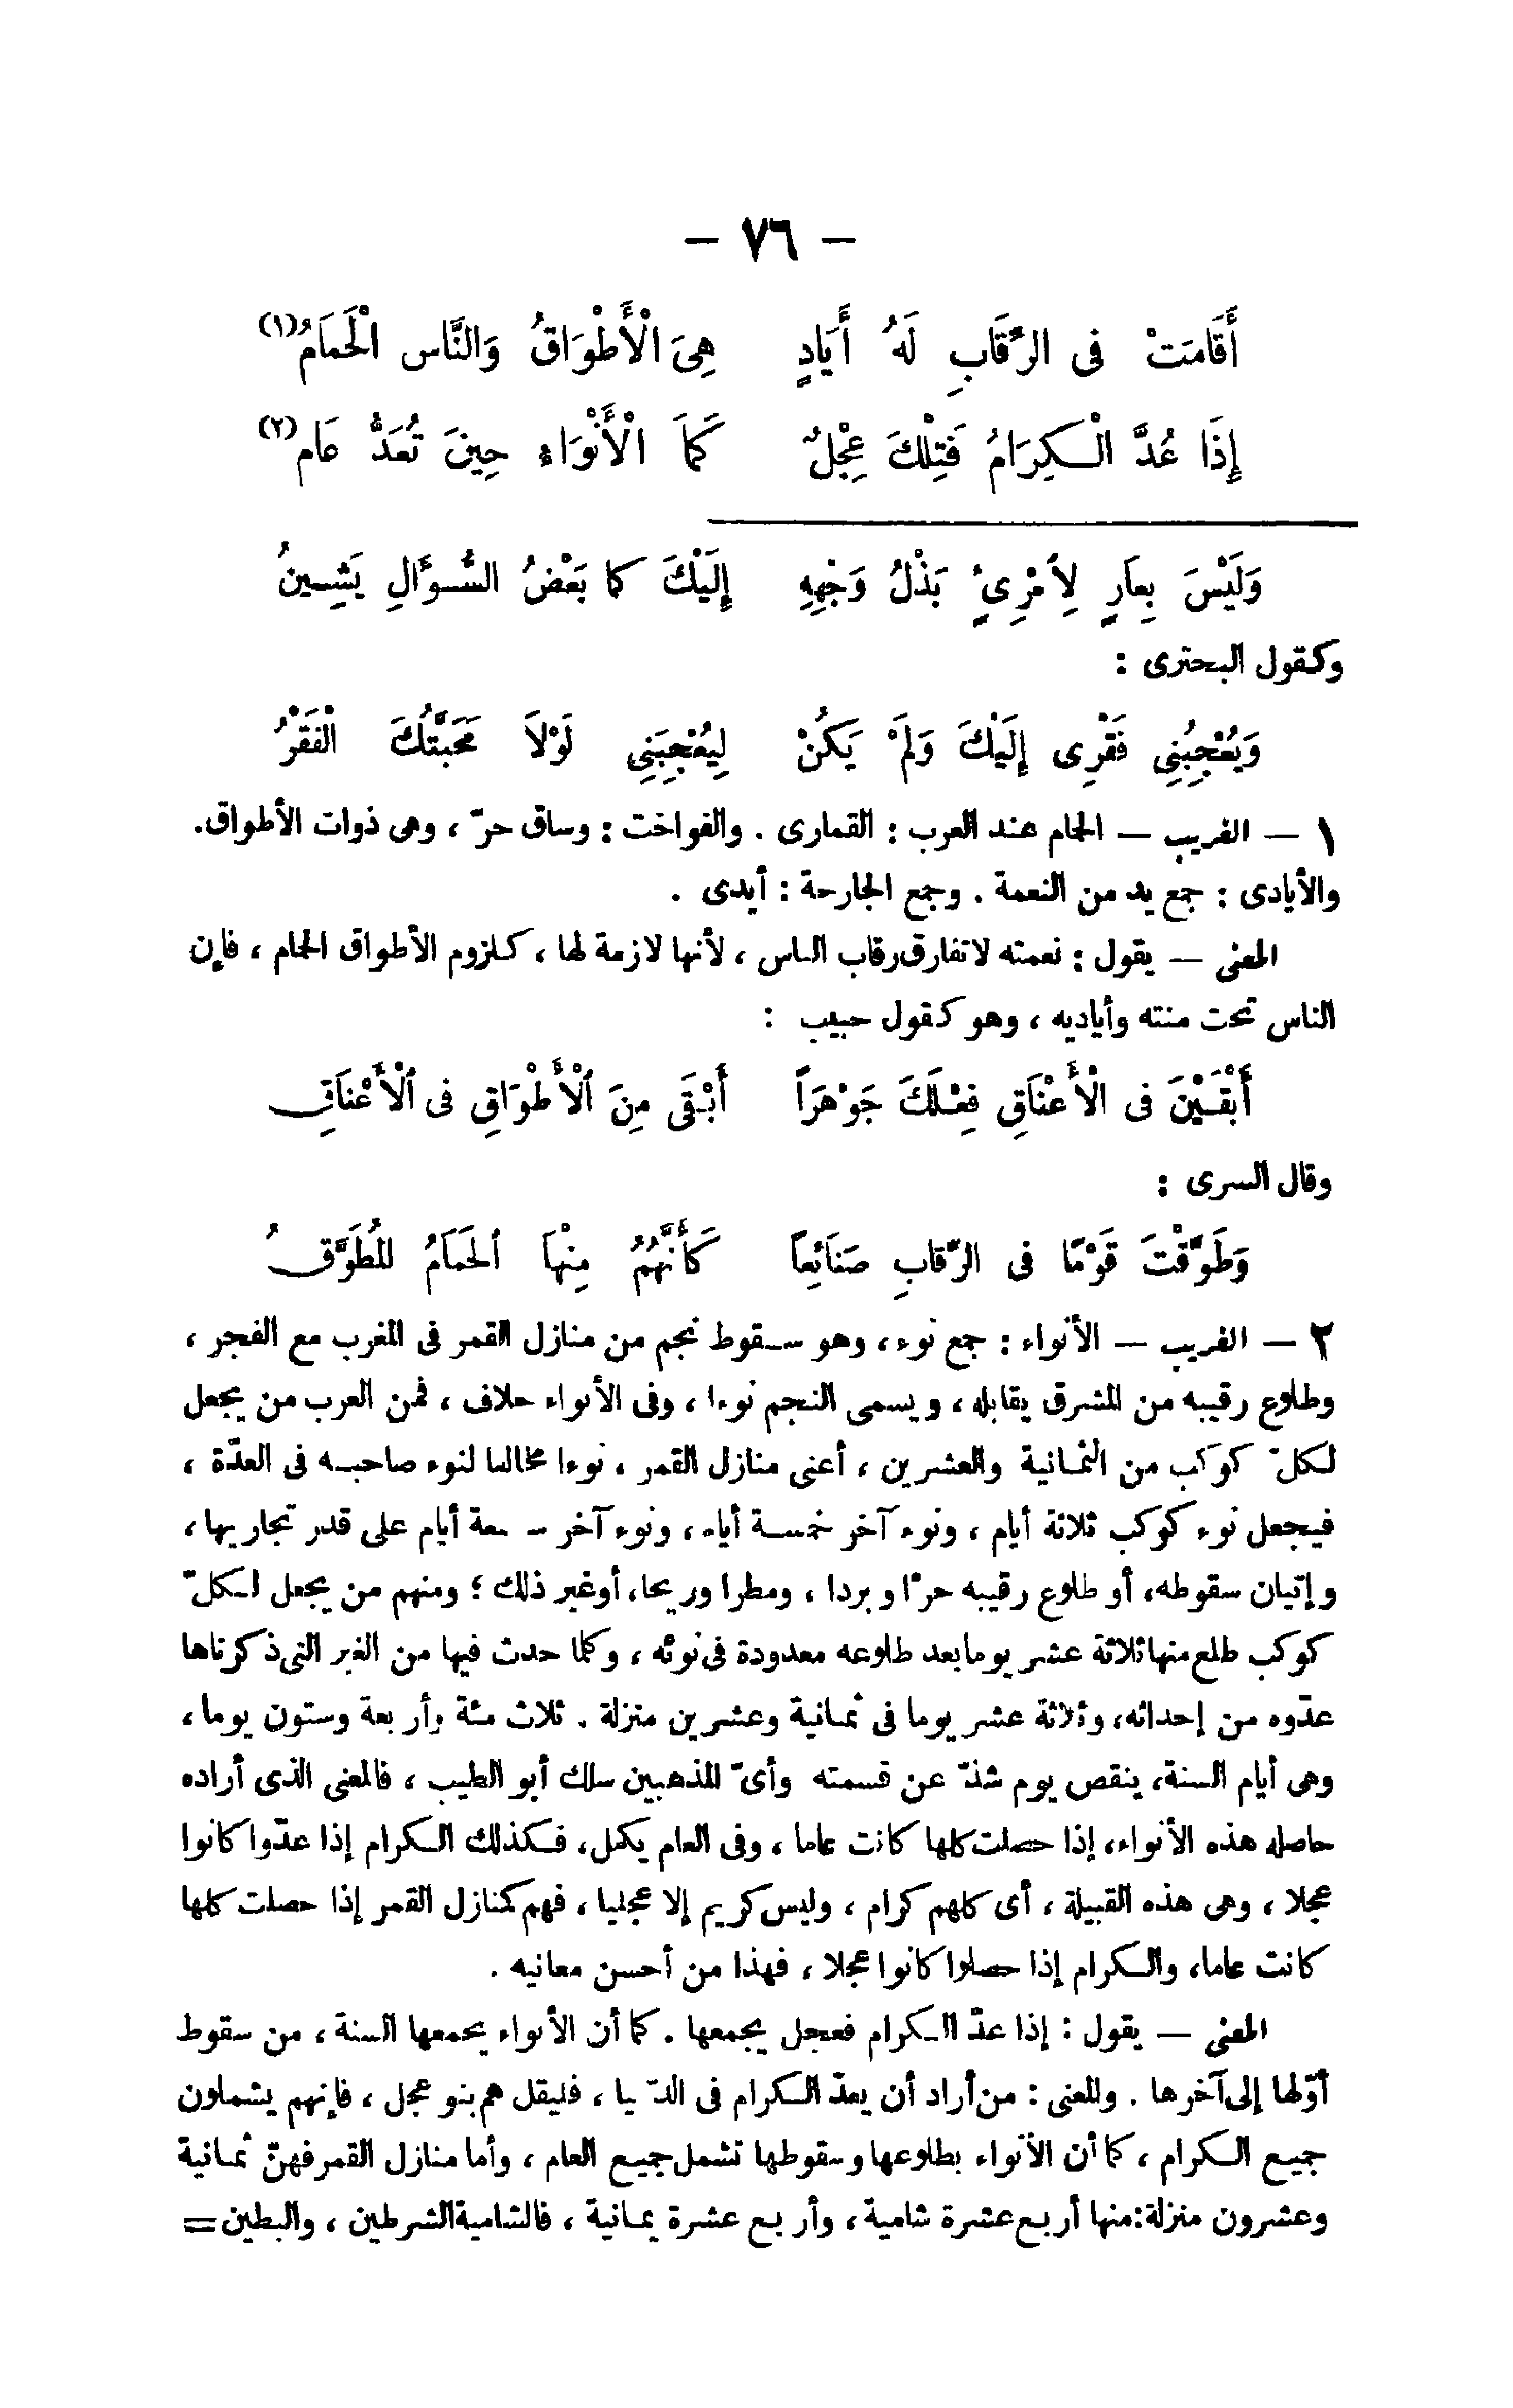 – ٧٦ –
أَقَامَتْ فى الرِّقَابِ لَهُ أَيَادٍ هِىَ الْأَطْوَاقُ وَالنَّاس الْحَمَامُ (١)
إِذَا عُدَّ الْكِرَامُ فَتِلْكَ عِجْلٌ كَمَا الْأَنْوَاء حِينَ تُعَدُّ عَام (٢)
وَلَيْسَ بِعَارٍ لِأمْرِىءٍ بَذْلُ وَجْهِهِ إِلَيْكَ كما بَعْضُ السُّؤَالِ يَشِينُ
وكقول البحترى :
وَيُعْجِبُنِى فَقْرِى إِلَيْكَ وَلَمْ يَكُنْ لِيُعْجِبَنِى لَوْلاَ مَحَبَّتُكَ الْفَقْرُ
١ – الغريب – الحمام عند العرب : القمارى . والفواخت : وساق حرّ ، وهى ذوات الأطواق.
والأيادى : جمع يد من النعمة . وجمع الجارحة : أيدى .
المعنى – يقول : نعمته لاتفارق رقاب الناس ، لأنها لازمة لها ، كلزوم الأطواق الحمام ، فإن
الناس تحت منته وأياديه ، وهو كقول حبيب :
أَبْقَيْنَ فى الْأَعْنَاقِ فِعْلَكَ جَوْهَرَاً أَبْقَى مِنَ الْأَطْوَاقِ فى الْأَعْنَاقِ
وقال السرى :
وَطَوَّقْتَ قَوْمًا فى الرِّقابِ صَنَائِعاً كَأَنَّهُمُ مِنْهَا الْحَمَامُ الْمُطَوَّقُ
٢ – الغريب – الأنواء : جمع نوء ، وهو سقوط نجم من منازل القمر فى المغرب مع الفجر ،
وطلوع رقيبه من المشرق يقابله ، ويسمى النجم نوءا ، وفى الأنواء خلاف ، فمن العرب من يجعل
لكلّ كوكب من الثمانية والعشرين ، أعنى منازل القمر ، نوءا مخالفا لنوء صاحبه فى العدّة ،
فيجعل نوء كوكب ثلاثة أيام ، ونوء آخر خمسة أيام ، ونوء آخر سبعة أيام على قدر تجاريها ،
وإتيان سقوطه ، أو طلوع رقيبه حرّا وبردا ، ومطرا وريحا، أوغير ذلك ؛ ومنهم من يجعل لكلّ
كوكب طلع منها ثلاثة عشر يوما بعد طلوعه معدودة فى نوئه ، وكلما حدث فيها من الغير التى ذكرناها
عدّوه من إحداثه، وثلاثة عشر يوما فى ثمانية وعشرين منزلة . ثلاث مئة وأربعة وستون يوما ،
وهى أيام السنة، ينقص يوم شذّ عن قسمته وأىّ المذهبين سلك أبو الطيب ، فالمعنى الذى أراده
حاصله هذه الأنواء، إذا حصلت كلها كانت عاما ، وفى العام يكمل، فكذلك الكرام إذا عدّوا كانوا
عجلا ، وهى هذه القبيلة ، أى كلهم كرام ، وليس كريم إلا عجليا ، فهم كمنازل القمر إذا حصلت كلها
كانت عاما، والكرام إذا حصلوا كانوا عجلا ، فهذا من أحسن معانيه .
المعنى – يقول : إذا عدّ الكرام فعجل يجمعها . كما أن الأنواء يجمعها السنة ، من سقوط
أوّلها إلى آخرها . والمعنى : من أراد أن يعدّ الكرام فى الدنيا ، فليقل هم بنو عجل ، فإنهم يشملون
جميع الكرام ، كما أن الأنواء بطلوعها وسقوطها تشمل جميع العام ، وأما منازل القمر فهنّ ثمانية
وعشرون منزلة : منها أربع عشرة شامية ، وأربع عشرة يمانية ، فالشامية الشرطين ، والبطين =